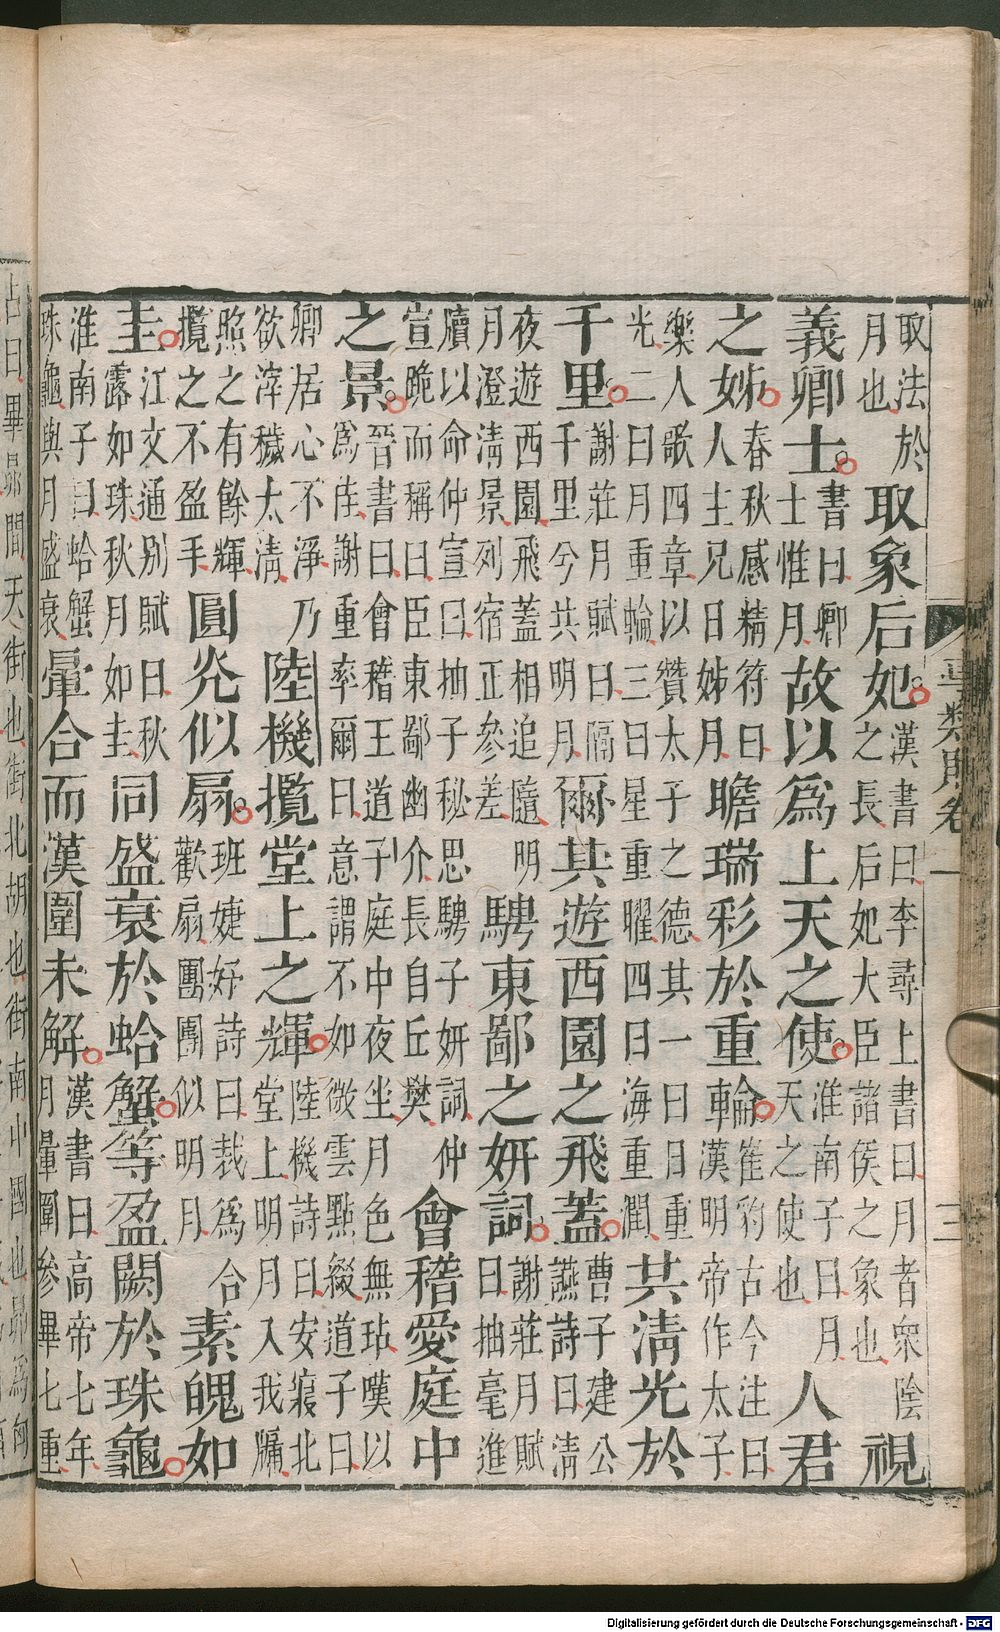 事類賦卷一
三
取法於
月也
取象后妃
漢書曰李尋上書曰月者衆陰
之長后妃大臣諸侯之象也
視
義卿士
書曰卿
士惟月
故以爲上天之使
淮南子曰月
天之使也
人君
之姊
春秋感精符曰
人主兄日姊月
瞻瑞彩於重輪
崔豹古今注曰
漢明帝作太子
樂人歌四章以贊太子之德其一曰日重
光二曰月重輪三曰星重曜四曰海重潤
共清光於
千里
謝莊月賦曰隔
千里兮共明月
爾其遊西園之飛蓋
曹子建公
讌詩曰清
夜遊西園飛蓋相追隨明
月澄清景列宿正參差
騁東鄙之妍詞
謝莊月賦
曰抽毫進
牘以命仲宣曰抽子秘思騁子妍詞仲
宣跪而稱曰臣東鄙幽介長自丘樊
會稽愛庭中
之景
晉書曰會稽王道子庭中夜坐月色無玷嘆以
爲佳謝重率爾曰意謂不如微雲點綴道子曰
卿居心不淨乃
欲滓穢太清
陸機攬堂上之輝
陸機詩曰安寢北
堂上明月入我牖
照之有餘輝
攬之不盈手
圓光似扇
班婕妤詩曰裁爲合
歡扇團團似明月
素魄如
圭
江文通別賦曰秋
露如珠秋月如圭
同盛衰於蛤蟹等盈闕於珠龜
淮南子曰蛤蟹
珠龜與月盛衰
暈合而漢圍未解
漢書曰高帝七年
月暈圍參畢七重
占曰畢昴間天街也街北胡也街南中國也昴爲匈
Digitalisierung gefördert durch die Deutsche Forschungsgemeinschaft - DFG